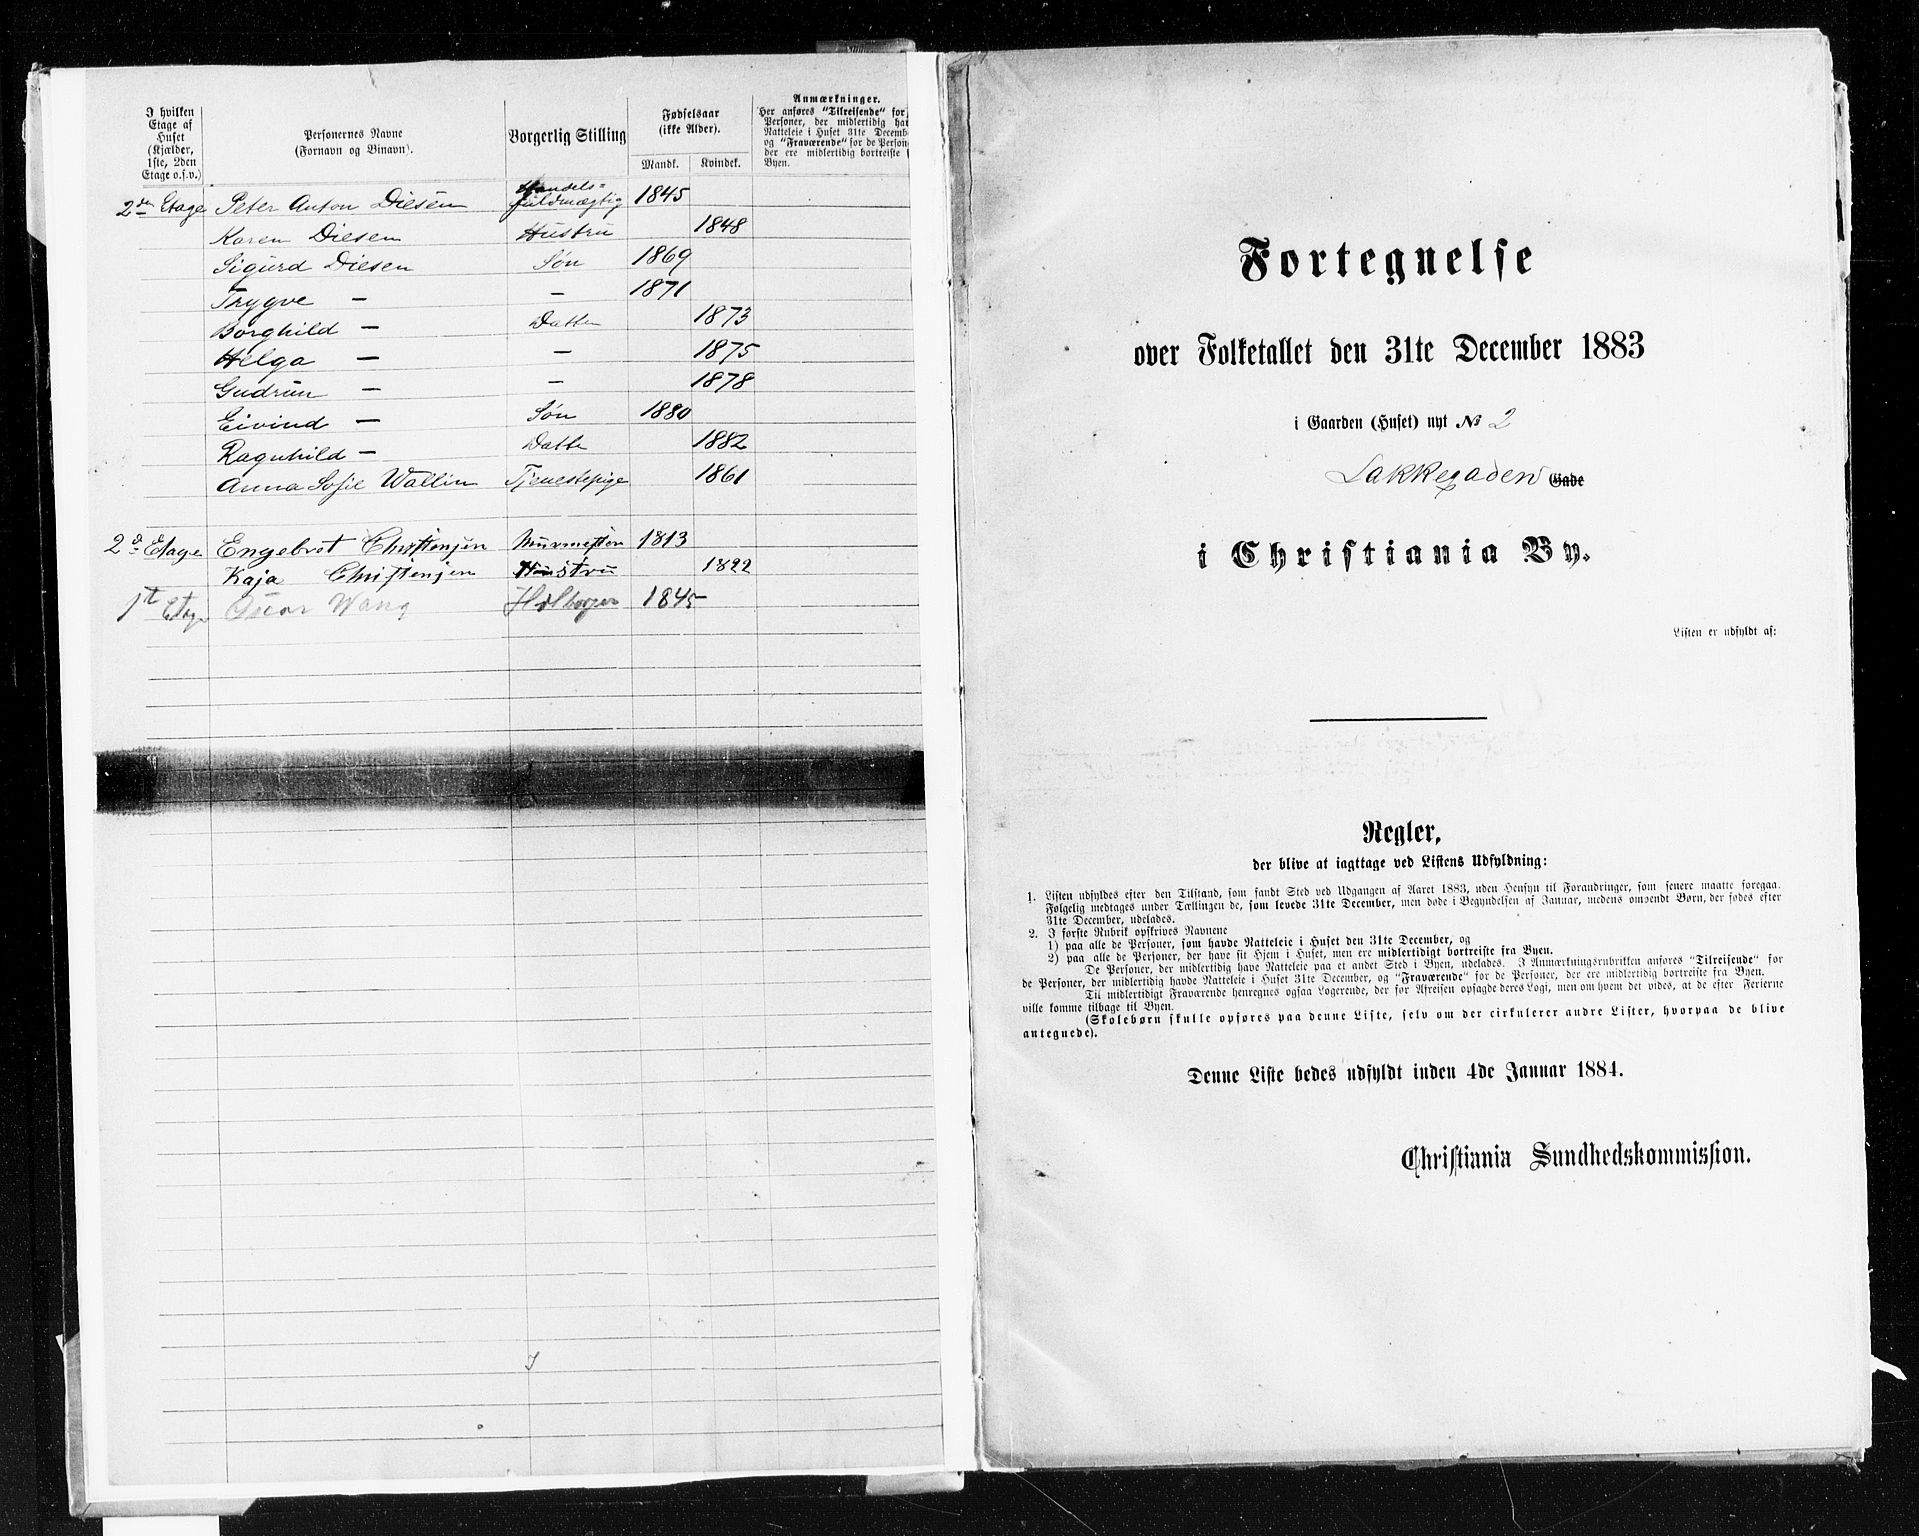 I hvilken
Etage af
Huset
(Kjælder,
1ste, 2den
Etage o.s.v.)
Personernes Navne
(Fornavn og Binavn).
Borgerlig Stilling
Fødselsaar
(ikke Alder).
Mandk. Kvindek.
Anmærkninger.
Her anføres "Tilreisende" for
Personer, der midlertidig hav
Natteleie i Huset 31te Decemb
og "Fraværende" for de Person
der ere midlertidig bortreiste f
Byen.
2den Etage Peter Anton Diesen Handels=fuldmægtig 1845
Karen Diesen Hustru 1848
Sigurd Diesen Søn 1869
Trygve — — 1871
Borghild — Datter 1873
Helga — — 1875
Gudrun — — 1878
Eivind — Søn 1880
Ragnhild — Datte 1882
Anna Sofie Wallin Tjenestepige 1861
2d Etage Engebret Christensen Murmester 1813
Kaja Christensen Hustru 1822
1st Etage Oscar Wang 1845
Fortegnelse
over Folketallet den 31te December 1883
i Gaarden (Huset) nyt № 2
Lakkegaden Gade
i Christiania By.
Listen er udfyldt af:
Regler,
der blive at iagttage ved Listens Udfyldning:
1. Listen udfyldes efter den Tilstand, som fandt Sted ved Udgangen af Aaret 1883, uden Hensyn til Forandringer, som senere maatte foregaa.
Følgelig medtages under Tællingen de, som levede 31te December, men døde i Begyndelsen af Januar, medens omvendt Børn, der fødes efter
31te December, udelades.
2. I første Rubrik opskrives Navnene
1) paa alle de Personer, som havde Natteleie i Huset den 31te December, og
2) paa alle de Personer, der have sit Hjem i Huset, men ere midlertidigt bortreiste fra Byen.
De Personer, der midlertidig have Natteleie paa et andet Sted i Byen, udelades. I Anmærkningsrubrikken anføres "Tilreisende" for
de Personer, der midlertidig havde Natteleie i Huset 31te December, og "Fraværende" for de Personer, der ere midlertidig bortreiste fra Byen.
Til midlertidigt Fraværende henregnes ogsaa Logerende, der før Afreisen opsagde deres Logi, men om hvem det vides, at de efter Ferierne
ville komme tilbage til Byen.
(Skolebørn skulle opføres paa denne Liste, selv om der cirkulerer andre Lister, hvorpaa de blive
antegnede).
Denne Liste bedes udfyldt inden 4de Januar 1884.
Christiania Sundhedskommission.